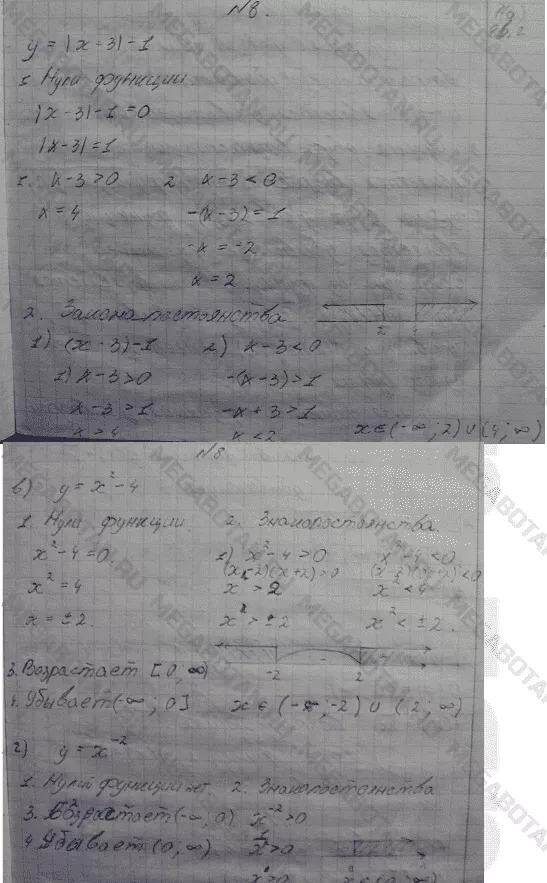 N8.
y = |x-3|-1
1. Нули функции.
|x-3|-1=0
|x-3|=1
1. x-3>0 2 x-3<0
x=4 -(x-3)=1
-x=-2
x=2
2. Законопостоянства
2
1) (x-3)-1 2) x-3<0
1) x-3>0 -(x-3)>1
x-3>1 -x+3>1
x>4 x<2 x∈(-∞;2)∪(4;∞)
N8
в) y=x²-4
1. Нули функции. 2. Знакопостоянства.
x²-4=0 1) x²-4>0 x²-4<0
(x-2)(x+2)>0 (x-2)(x+2)<0
x²=4 x>2 x²<4
x=±2. x²>±2 x²<±2.
3. Возрастает [0,∞)
-2 - 2 +
4. Убывает(-∞;0] x∈(-∞;-2)∪(2;∞)
г) y=x⁻²
1. Нулей функции нет. 2. Знакопостоянства
3. Возрастает(-∞;0) x⁻²>0
4 Убывает (0;∞)
MEGABOTAN.RU